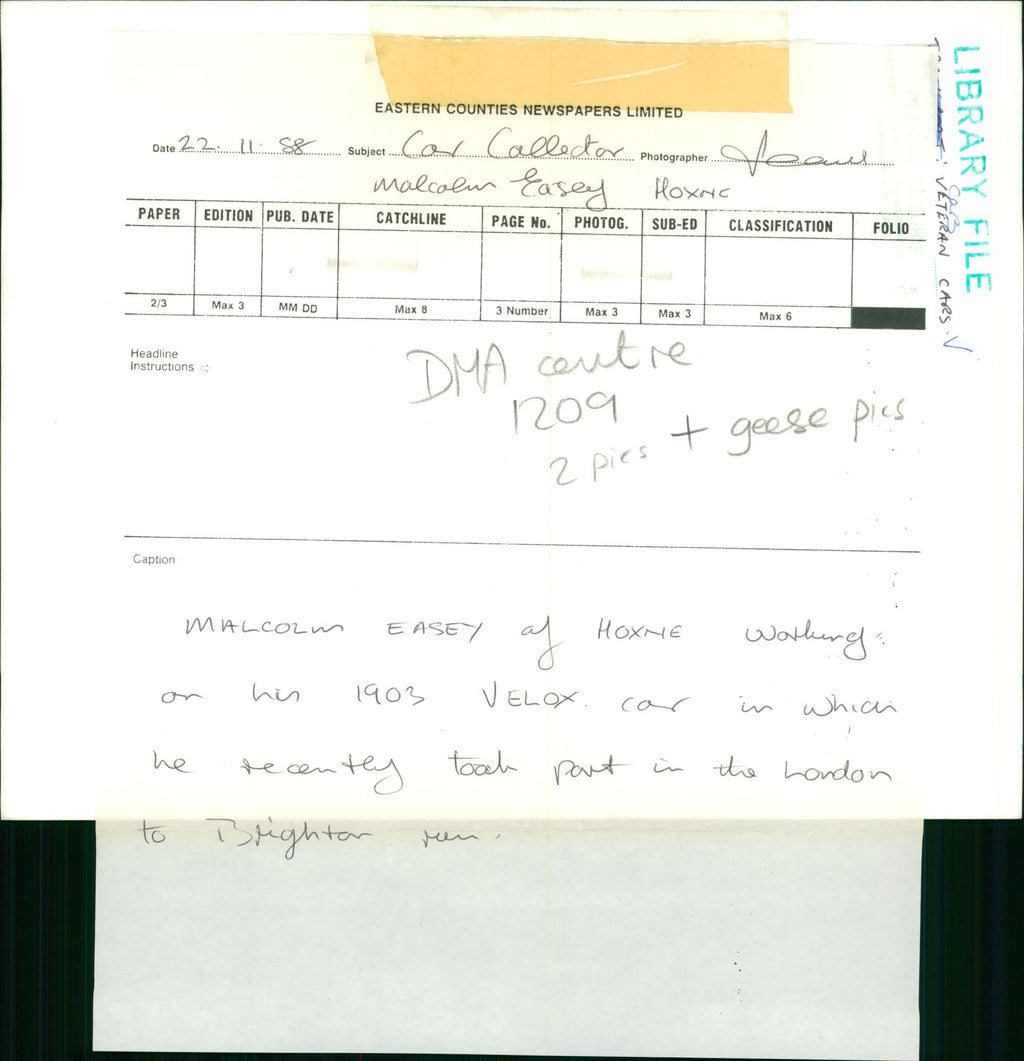 EASTERN COUNTIES NEWSPAPERS LIMITED
Date 22.11.88 Subject Car Collector Photographer
Malcolm Easey HOXNE
PAPER EDITION PUB. DATE CATCHLINE PAGE No. PHOTOG. SUB-ED CLASSIFICATION FOLIO
2/3 Max 3 MM DD Max 8 3 Number Max 3 Max 3 Max 6
Headline
Instructions ⇨
DMA centre
1209
2 pics + geese pics
Caption
MALCOLM EASEY of HOXNE working
on his 1903 VELOX. car in which
he recently took part in the London
to Brighton run.
LIBRARY FILE
VETERAN CARS. V